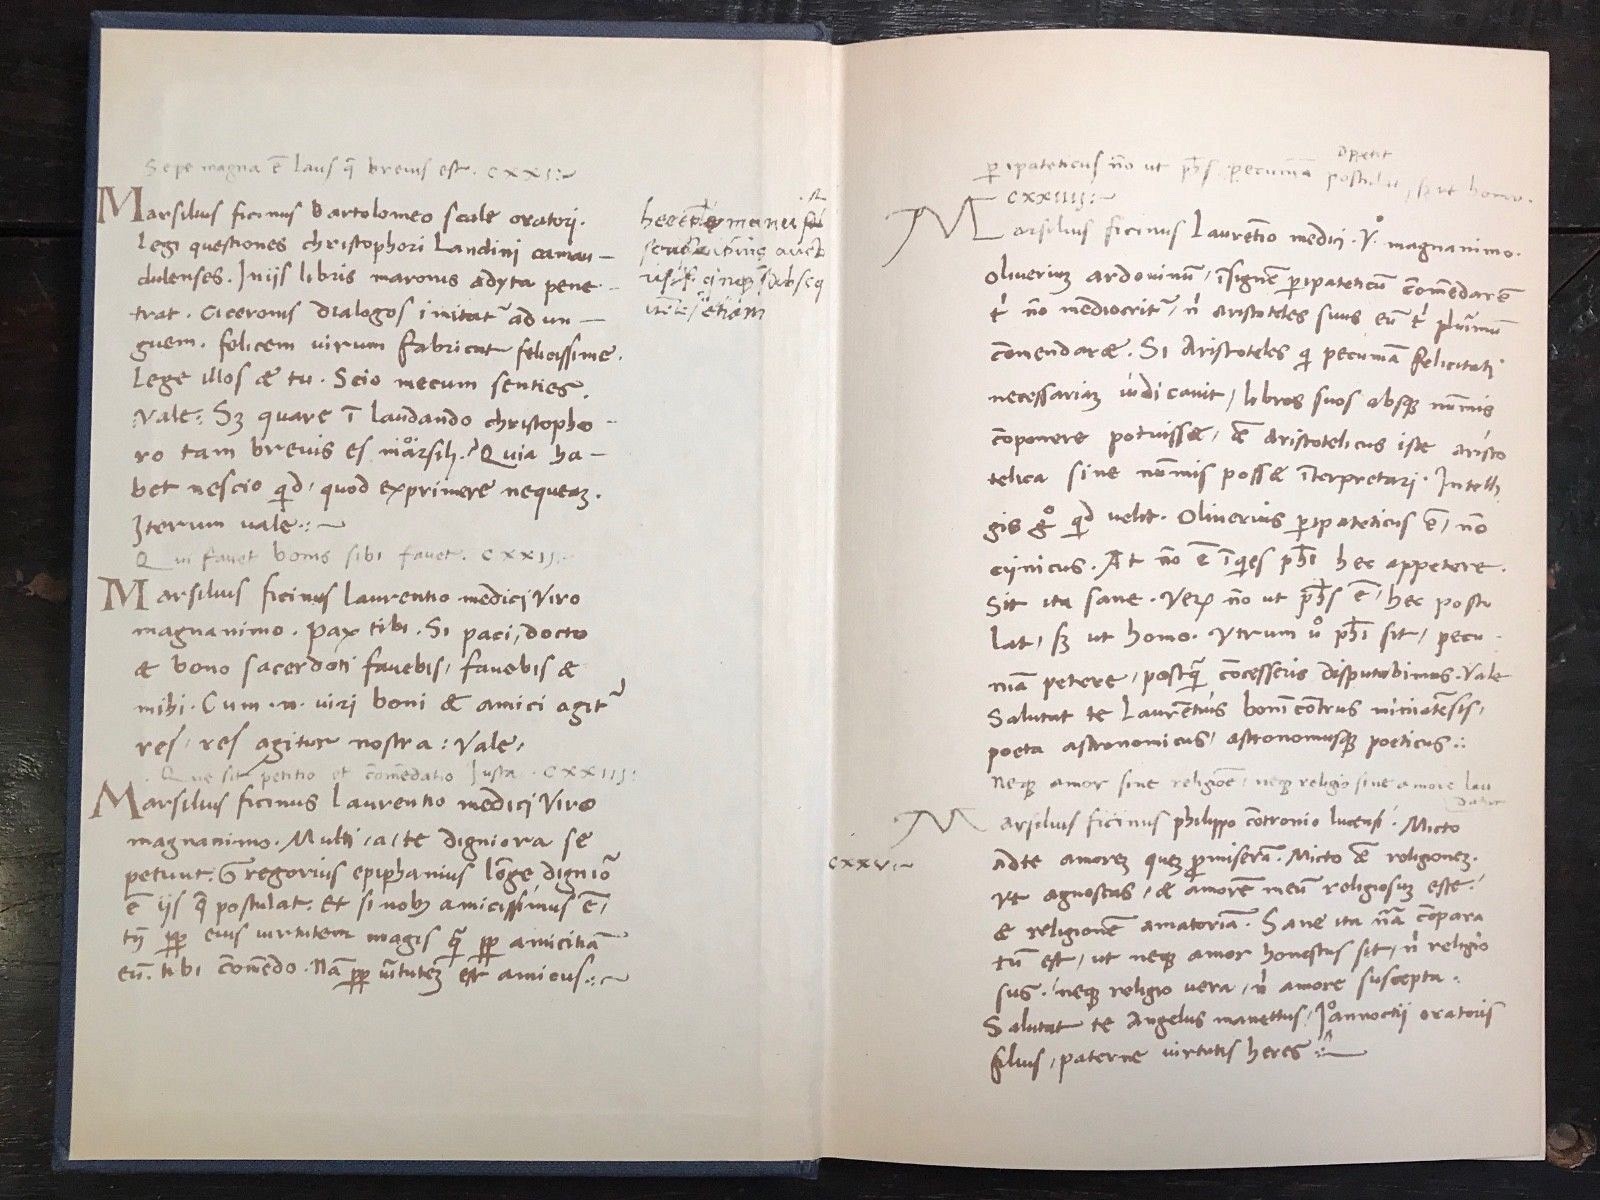 Sepe magna ē laus q̄ brevis est. CXXI:~
Marsilius ficinus Bartolomeo scale oratori.
Legi questiones christophori Landini camau-
dulenses. In iis libris maronis adyta pene-
trat. Ciceronis dialogos imitat᷑ ad un-
guem. felicem virum fabricat felicissime.
Lege illos & tu. Scio mecum senties.
Vale: Sꝫ quare ī laudando christopho-
ro tam brevis es marsili? Quia ha-
bet nescio qd, quod exprimere nequeaꝫ.
Iterum vale.:~
Qui favet bonis sibi favet. CXXII:~
Marsilius ficinus Laurentio medici Viro
magnanimo. pax tibi. Si paci, docto
& bono sacerdoti favebis, favebis &
mihi. Cum .n. viri boni & amici agit᷑
res, res agitur nostra: Vale,
Que sit petitio et cōmēdatio Justa. CXXIII:
Marsilius ficinus Laurentio medici Viro
magnanimo. Multi, a, te digniora se
petunt: Gregorius epiphanius lōge digniōr
ē iis q̄ postulat. Et si nobis amicissimus ē,
tn̄ ꝓp eius virtutem magis q̄ ꝓp amicitiā
eū. tibi cōmēdo. Nā ꝓp v̄tuteꝫ est amicus.:~
hec epla manu
etiam
ꝑipateticus nō ut phs pecuniā postulat, sꝫ ut homo.
appetit
CXXIIII:~
Marsilius ficinus Laurētio medici. V. magnanimo.
Oliveriuꝫ ardoīnū, īsignē ꝑipateticū cōmēdarē
t̓ nō mediocrit᷑, n̓ aristoteles suus eū t̓ plurimū
cōmendaræ. Si Aristoteles q̓ pecuniā felicitati
necessariaꝫ iudicavit, libros suos absqꝫ nūmis
cōponere potuisset, & Aristotelicus iste aristo
telica sine nūmis posset īterpretari. Intelli
gis gͦ qd velit. Oliverius ꝑipateticus ē, nō
cynicus. At nō ē īquies phī hec appetere.
Sit ita sane. Veꝝ nō ut phs ē, hec postu
lat, sꝫ ut homo. Utrum vͦ phī sit, pecu-
niā petere, postq̄ cōcesseris disputabimus. Vale
Salutat te Laurētius bonīcōtrus miniatēsis,
poeta astronomicus, astronomusqꝫ poeticus.:
Neqꝫ amor sine religiōe, neqꝫ religio sine amore lau
datur
CXXV:~
Marsilius ficinus philippo cōtronio lucensi. Micto
ad te amoreꝫ quеꝫ ꝓmiserā. Micto & religioneꝫ.
Ut agnoscas, & amorē meū religiosuꝫ esse.
& religionē amatoriā. Sane ita n̄rā cōpara
tū est, ut neqꝫ amor honestus sit, n̓ religio
sus. neqꝫ religio vera, n̓ amore suscepta.
Salutat te Angelus manettus, Joannoctii oratoris
filius, paterne virtutis heres.:~